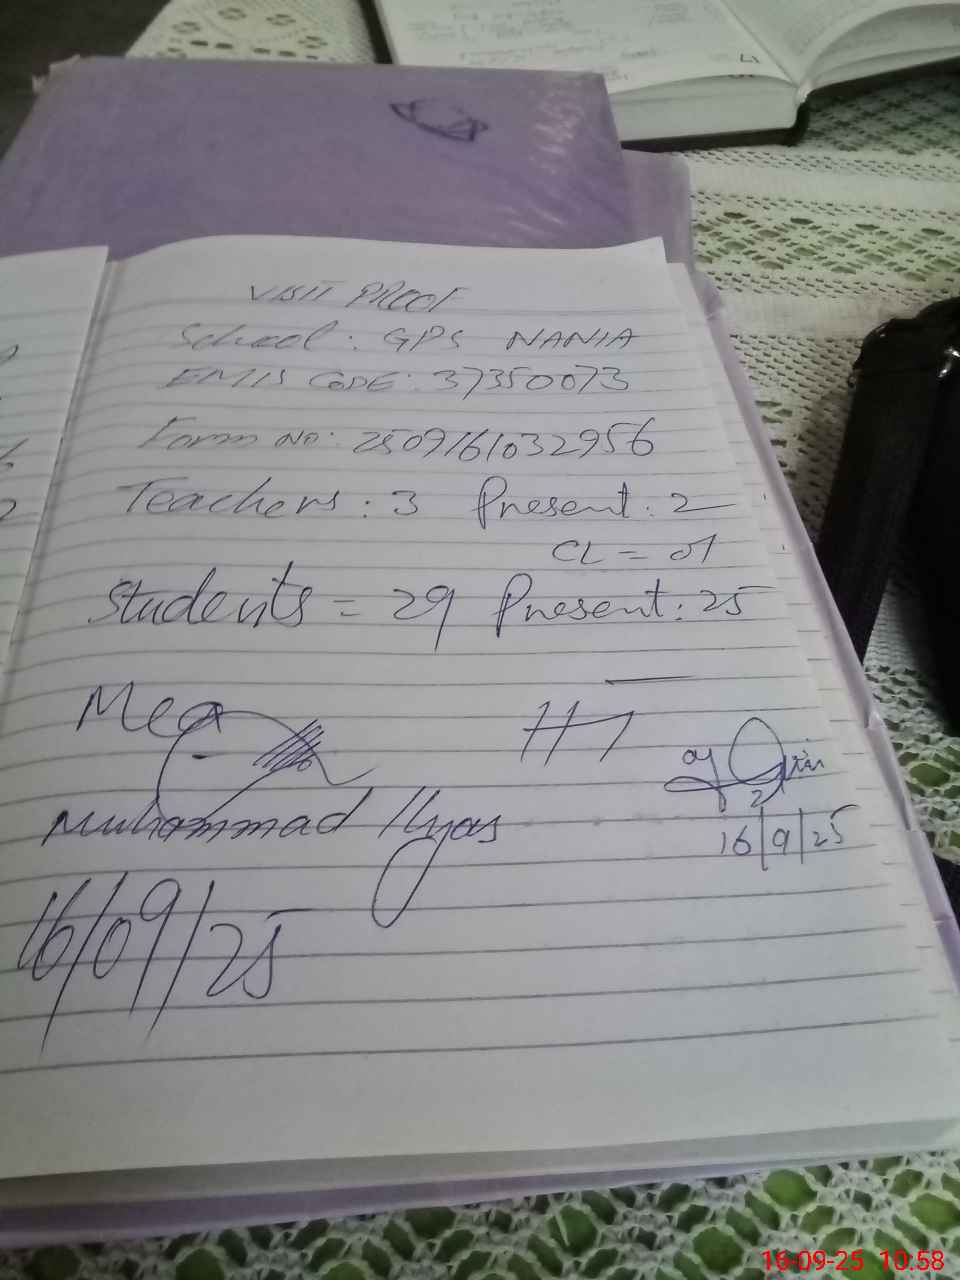 VISIT PROOF
School: GPS NANIA
EMIS CODE: 37350073
Form No: 2509161032956
Teachers: 3 Present: 2
CL = 01
Students = 29 Present: 25
Mea
HT
Muhammad Ilyas
16/9/25
16/09/25
16-09-25 10:58